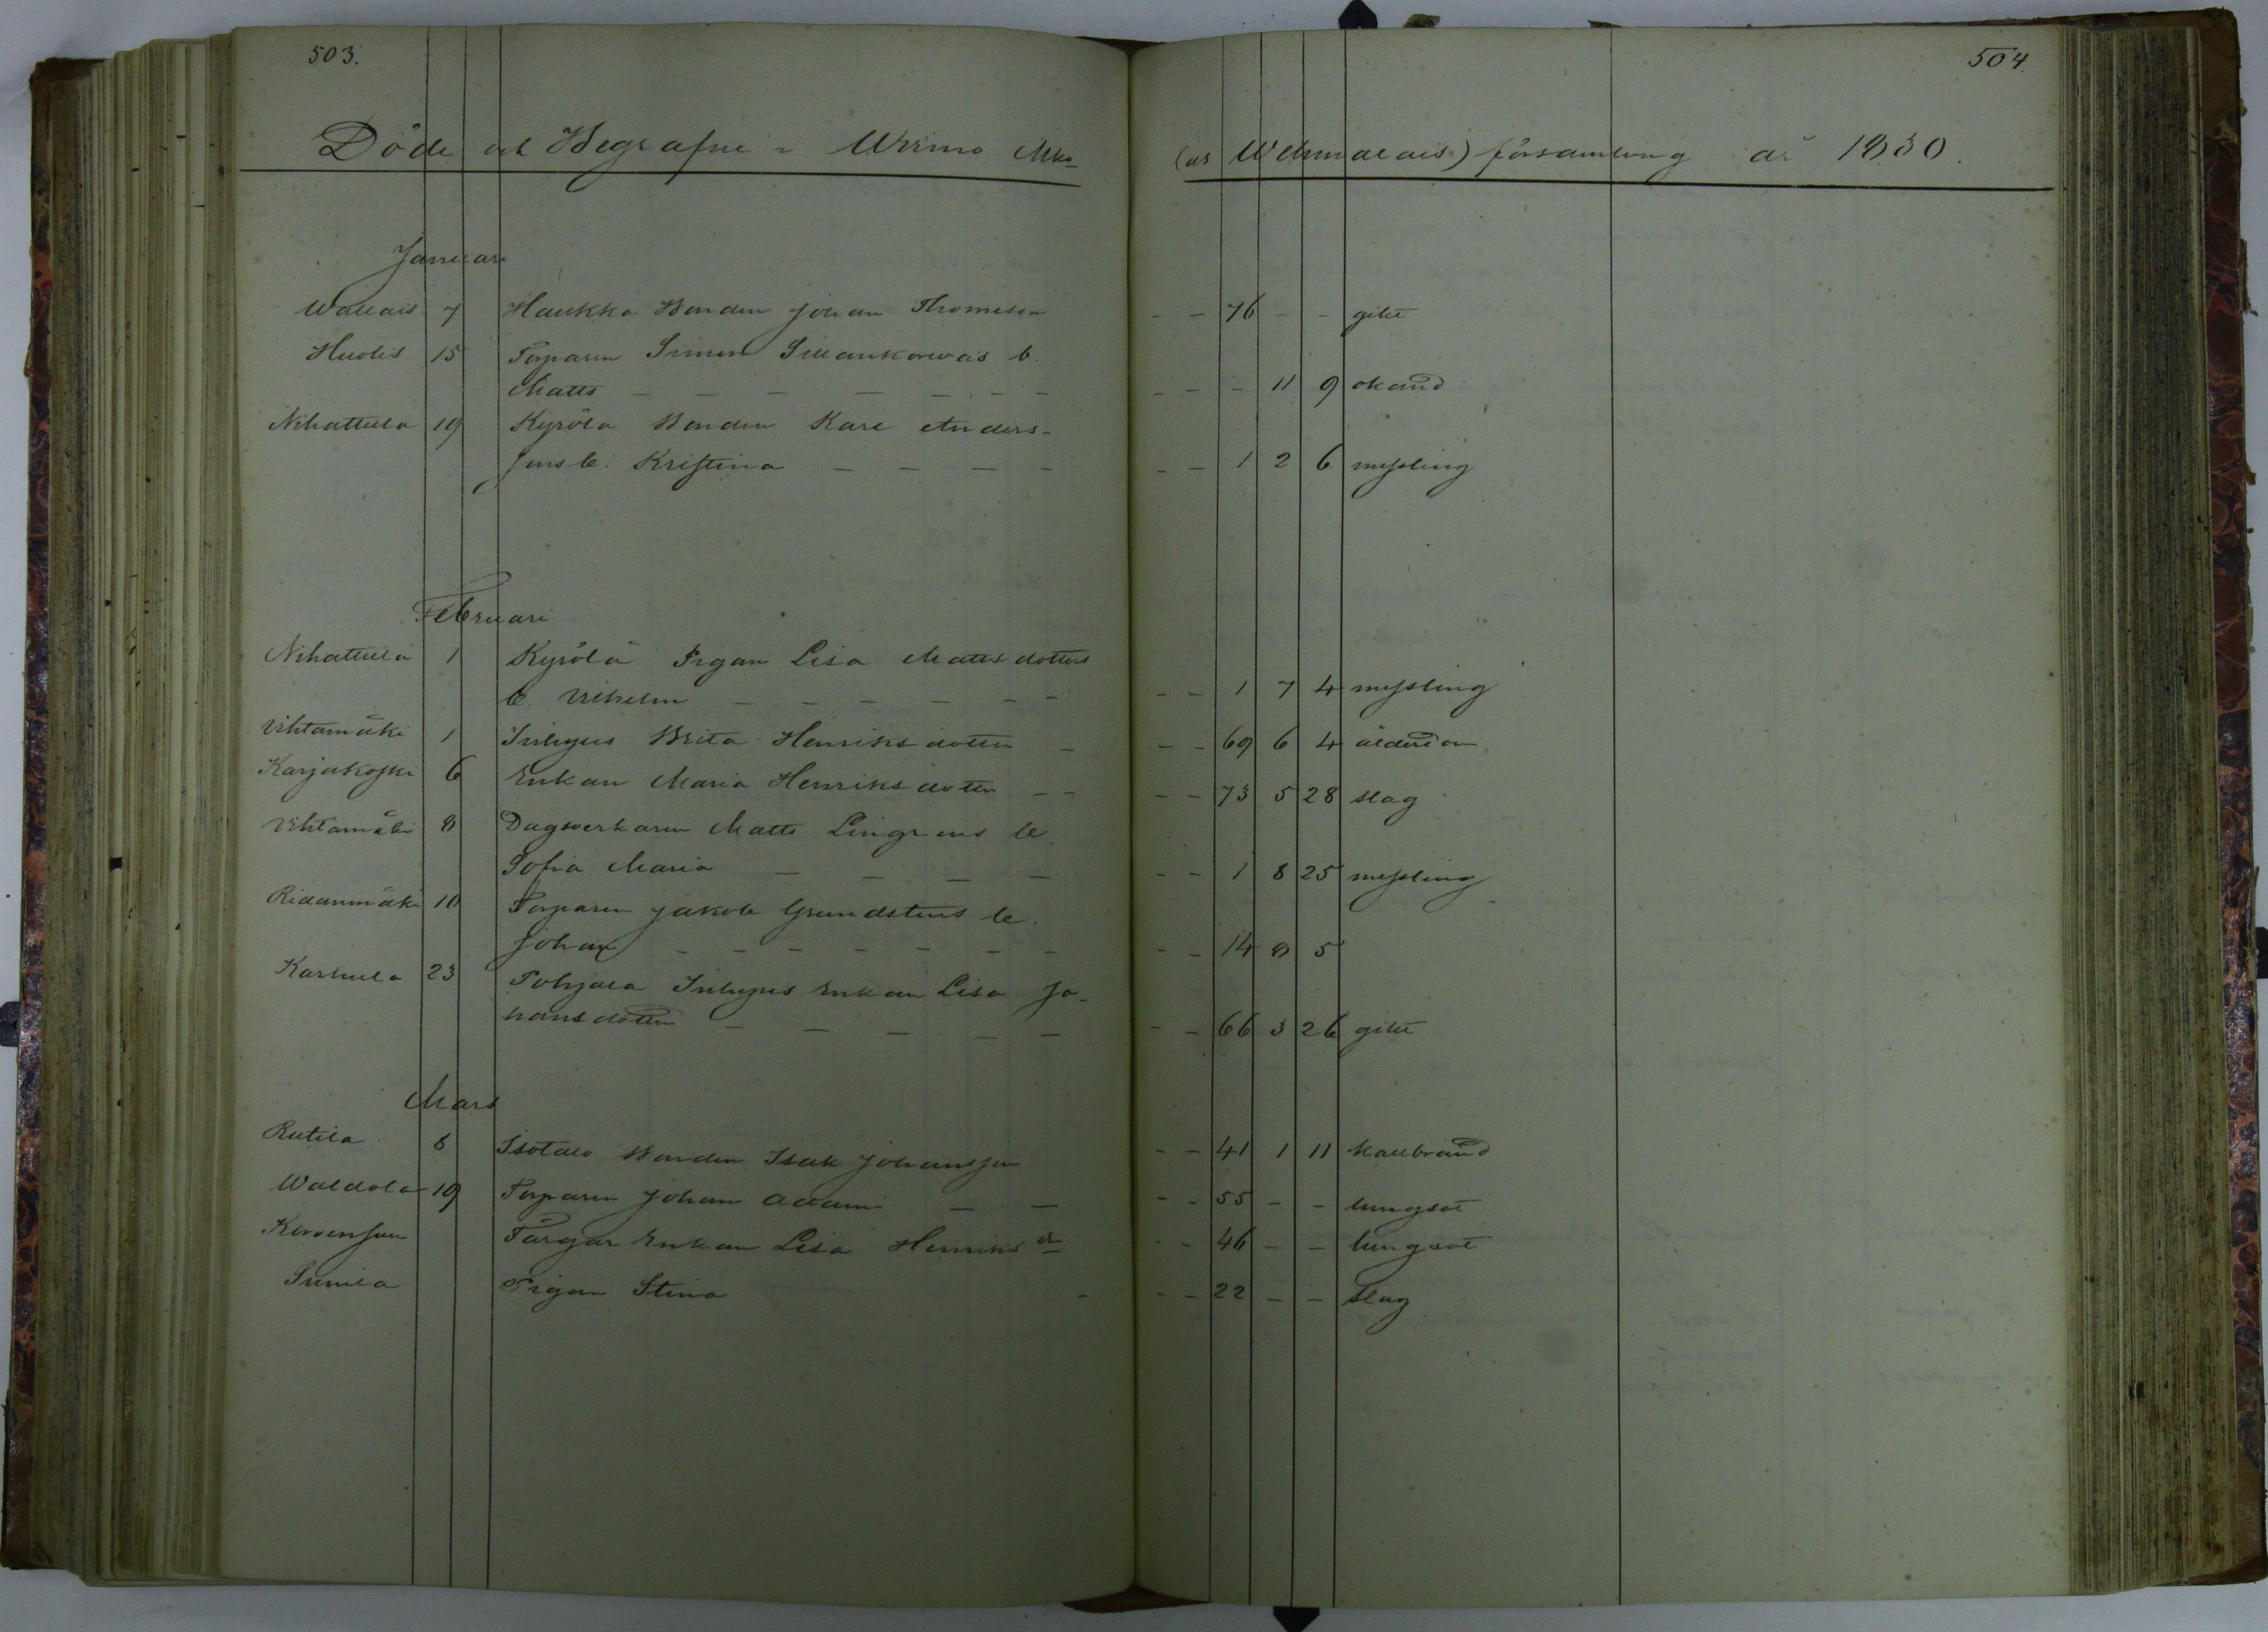 503.
504.
Döde och Begrafne i Wirmo Mko (as Wehmalais) församling år 1830.
Januari
Wallais 7 Haukka Bonden Johan Thomeson - - 76 - - gikt
Huolis 15 Torparen Simon Sillankorvas b.
Matts - - - - - - - - - 11 9 okänd
Nihattula 19 Kyrölä Bonden Karl Anders-
sons b. Kristina - - - - - - 1 2 6 messling
Februari
Nihattula 1 Kyrölä Pigan Lisa Mattsdotters
b. Vilhelm - - - - - - - 1 7 4 messling
Vihtamäki 1 Inhyses Brita Henriksdotter - - - 69 6 4 ålderdom
Karjakoski 6 Enkan Maria Henriksdotter - - - - 73 5 28 slag
Vihtamäki 8 Dagsverkaren Matts Lingrens b.
Sofia Maria - - - - - - 1 8 25 messling
Ridanmäki 10 Torparen Jakob Grundstens b.
Johan - - - - - - - - - 14 8 5
Karhula 23 Pohjala Inhyses Enkan Lisa Jo-
hansdotter - - - - - - - 66 3 26 gikt
Mars
Rutila 8 Isotalo Bonden Isak Johansson - - 41 1 11 kallbrand
Waldola 19 Torparen Johan Adam - - - - 55 - - lungsot
Korvensuu Färgar Enkan Lisa Henriks d. - - 46 - - lungsot
Sunila Pigan Stina - - - 22 - - slag